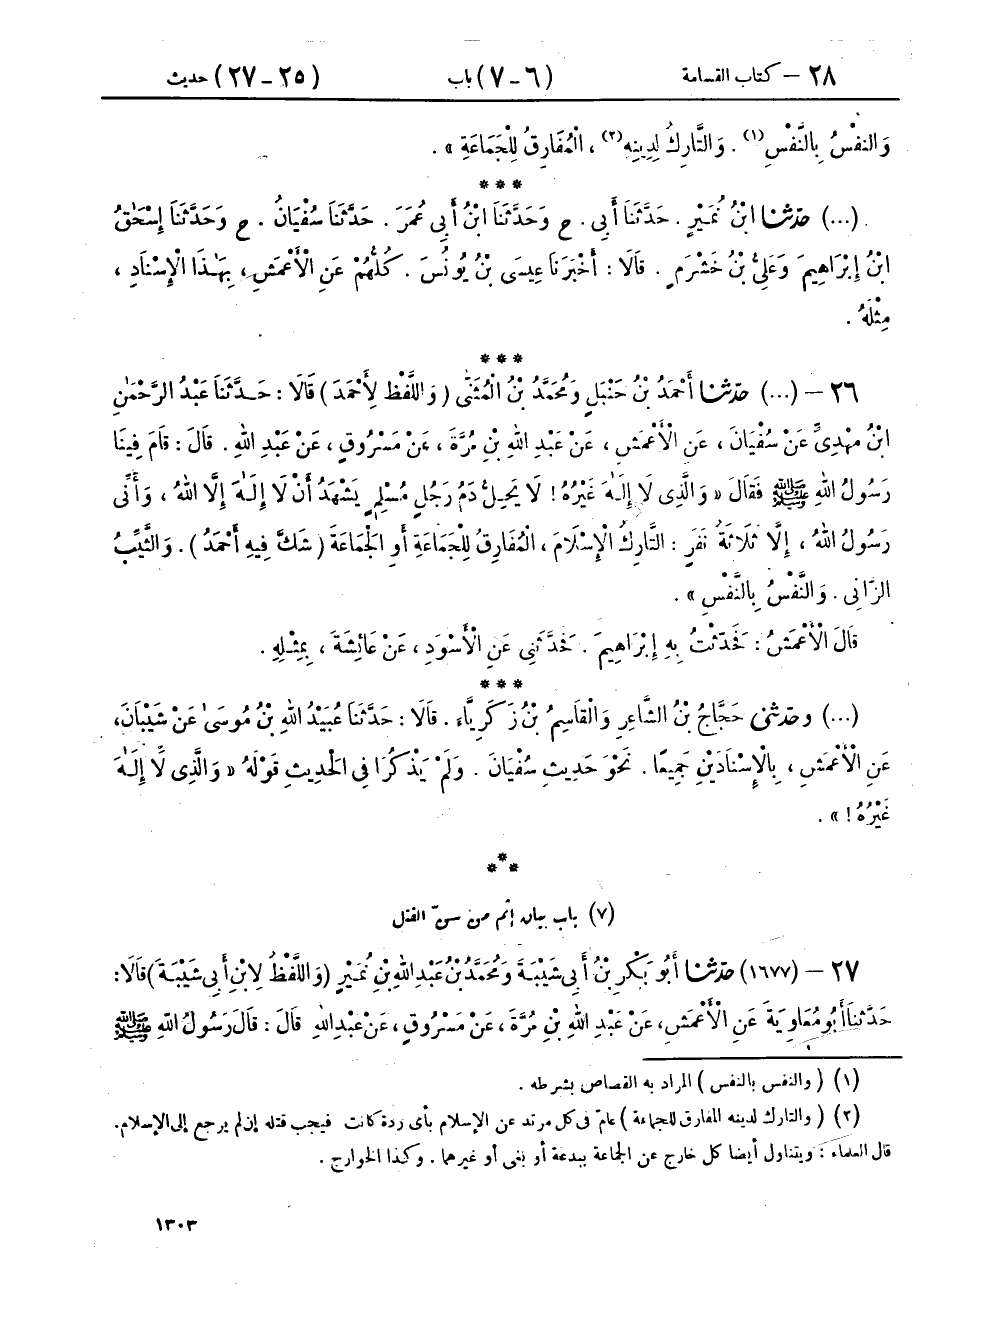 ٢٨ – كتاب القسامة (٦ – ٧) باب (٢٥ – ٢٧) حديث
وَالنَّفْسُ بِالنَّفْسِ(١) . وَالتَّارِكُ لِدِينِهِ(٢) ، الْمُفَارِقُ لِلْجَمَاعَةِ » .
***
(...) حدّثنا ابْنُ نُمَيْرٍ . حَدَّثَنَا أَبِي . ح وَحَدَّثَنَا ابْنُ أَبِي عُمَرَ . حَدَّثَنَا سُفْيَانُ . ح وَحَدَّثَنَا إِسْحَٰقُ
ابْنُ إِبْرَاهِيمَ وَعَلِيُّ بْنُ خَشْرَمٍ . قَالَا : أَخْبَرَنَا عِيسَى بْنُ يُونُسَ . كُلُّهُمْ عَنِ الْأَعْمَشِ، بِهَٰذَا الْإِسْنَادِ ،
مِثْلَهُ .
***
٢٦ – (...) حدّثنا أَحْمَدُ بْنُ حَنْبَلٍ وَمُحَمَّدُ بْنُ الْمُثَنَّى ( وَاللَّفْظُ لِأَحْمَدَ ) قَالَا : حَدَّثَنَا عَبْدُ الرَّحْمَٰنِ
ابْنُ مَهْدِيٍّ عَنْ سُفْيَانَ ، عَنِ الْأَعْمَشِ ، عَنْ عَبْدِ اللهِ بْنِ مُرَّةَ ، عَنْ مَسْرُوقٍ ، عَنْ عَبْدِ اللهِ . قَالَ : قَامَ فِينَا
رَسُولُ اللهِ ﷺ فَقَالَ « وَالَّذِي لَا إِلَٰهَ غَيْرُهُ ! لَا يَحِلُّ دَمُ رَجُلٍ مُسْلِمٍ يَشْهَدُ أَنْ لَا إِلَٰهَ إِلَّا اللهُ ، وَأَنِّي
رَسُولُ اللهِ ، إِلَّا ثَلَاثَةُ نَفَرٍ : التَّارِكُ الْإِسْلَامَ ، الْمُفَارِقُ لِلْجَمَاعَةِ أَوِ الْجَمَاعَةَ ( شَكَّ فِيهِ أَحْمَدُ ) . وَالثَّيِّبُ
الزَّانِي . وَالنَّفْسُ بِالنَّفْسِ » .
قَالَ الْأَعْمَشُ : فَحَدَّثْتُ بِهِ إِبْرَاهِيمَ . فَحَدَّثَنِي عَنِ الْأَسْوَدِ ، عَنْ عَائِشَةَ ، بِمِثْلِهِ .
***
(...) وحدّثني حَجَّاجُ بْنُ الشَّاعِرِ وَالْقَاسِمُ بْنُ زَكَرِيَّاءَ . قَالَا : حَدَّثَنَا عُبَيْدُ اللهِ بْنُ مُوسَىٰ عَنْ شَيْبَانَ،
عَنِ الْأَعْمَشِ ، بِالْإِسْنَادَيْنِ جَمِيعًا . نَحْوَ حَدِيثِ سُفْيَانَ . وَلَمْ يَذْكُرَا فِي الْحَدِيثِ قَوْلَهُ « وَالَّذِي لَا إِلَٰهَ
غَيْرُهُ ! » .
***
(٧) باب بيان إثم من سنّ القتل
٢٧ – (١٦٧٧) حدّثنا أَبُو بَكْرِ بْنُ أَبِي شَيْبَةَ وَمُحَمَّدُ بْنُ عَبْدِ اللهِ بْنِ نُمَيْرٍ (وَاللَّفْظُ لِابْنِ أَبِي شَيْبَةَ) قَالَا:
حَدَّثَنَا أَبُو مُعَاوِيَةَ عَنِ الْأَعْمَشِ، عَنْ عَبْدِ اللهِ بْنِ مُرَّةَ ، عَنْ مَسْرُوقٍ ، عَنْ عَبْدِ اللهِ قَالَ : قَالَ رَسُولُ اللهِ ﷺ
(١) ( والنفس بالنفس ) المراد به القصاص بشرطه .
(٢) ( والتارك لدينه المفارق للجماعة ) عامّ فى كل مرتد عن الإسلام بأى ردة كانت فيجب قتله إن لم يرجع إلى الإسلام.
قال العلماء : ويتناول أيضا كل خارج عن الجماعة ببدعة أو بغى أو غيرهما . وكذا الخوارج .
١٣٠٣